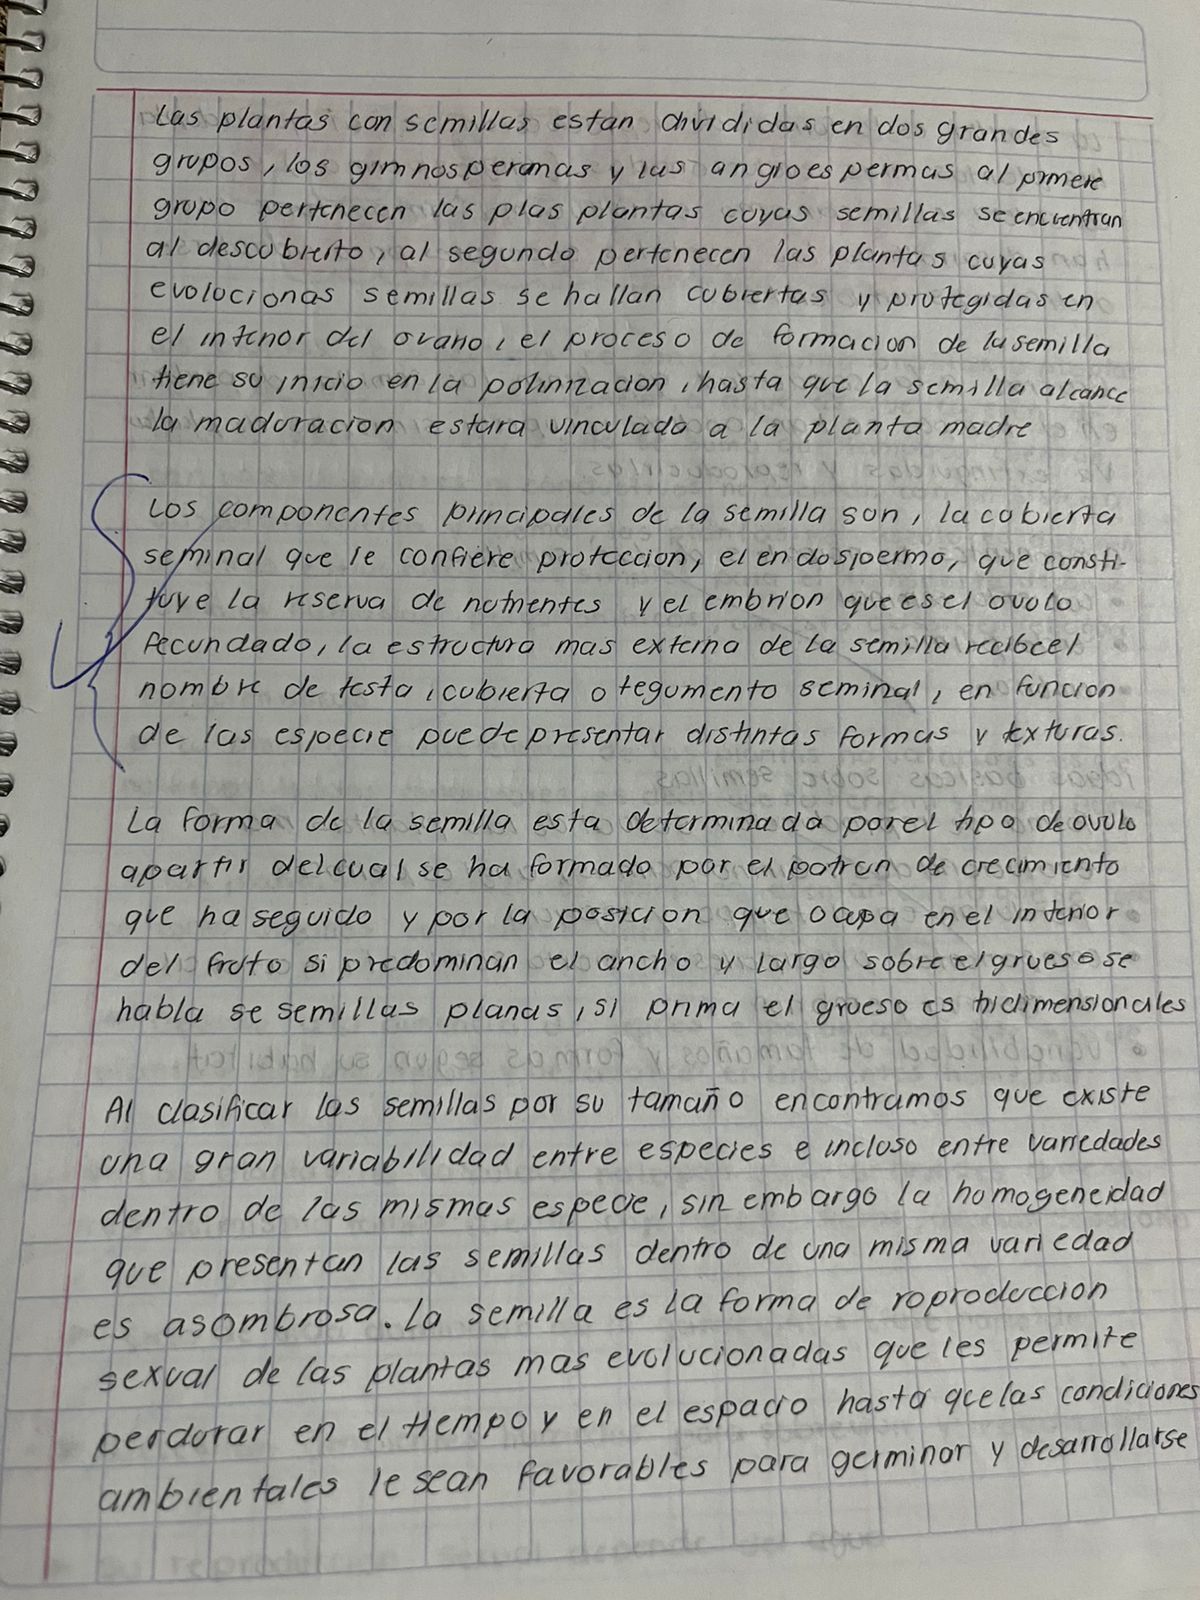 Las plantas con semillas estan divididas en dos grandes
grupos, los gimnosperamas y las angioespermas al primere
grupo pertenecen las plas plantas cuyas semillas se encuentran
al descubierto, al segundo pertenecen las plantas cuyas
evolucionas semillas se hallan cubiertas y protegidas en
el interior del ovario, el proceso de formacion de la semilla
tiene su inicio en la polinizacion, hasta que la semilla alcance
la maduracion estara vinculado a la planta madre
Los componentes principales de la semilla son, la cobierta
seminal que le confiere proteccion, el endospermo, que consti-
tuye la reserva de nutrientes y el embrion que es el ovulo
fecundado, la estructura mas externa de la semilla recibe el
nombre de testa, cubierta o tegumento seminal, en funcion
de las especie puede presentar distintas formas y texturas.
La forma de la semilla esta determinada por el tipo de ovulo
apartir del cual se ha formado por el patron de crecimiento
que ha seguido y por la posicion que ocupa en el interior
del fruto si predominan el ancho y largo sobre el grueso se
habla se semillas planas, si prima el grueso es tridimensionales
Al clasificar las semillas por su tamaño encontramos que existe
una gran variabilidad entre especies e incluso entre variedades
dentro de las mismas especie, sin embargo la homogeneidad
que presentan las semillas dentro de una misma variedad
es asombrosa. La semilla es la forma de roproduccion
sexual de las plantas mas evolucionadas que les permite
perdurar en el tiempo y en el espacio hasta que las condiciones
ambientales le sean favorables para germinar y desarrollarse